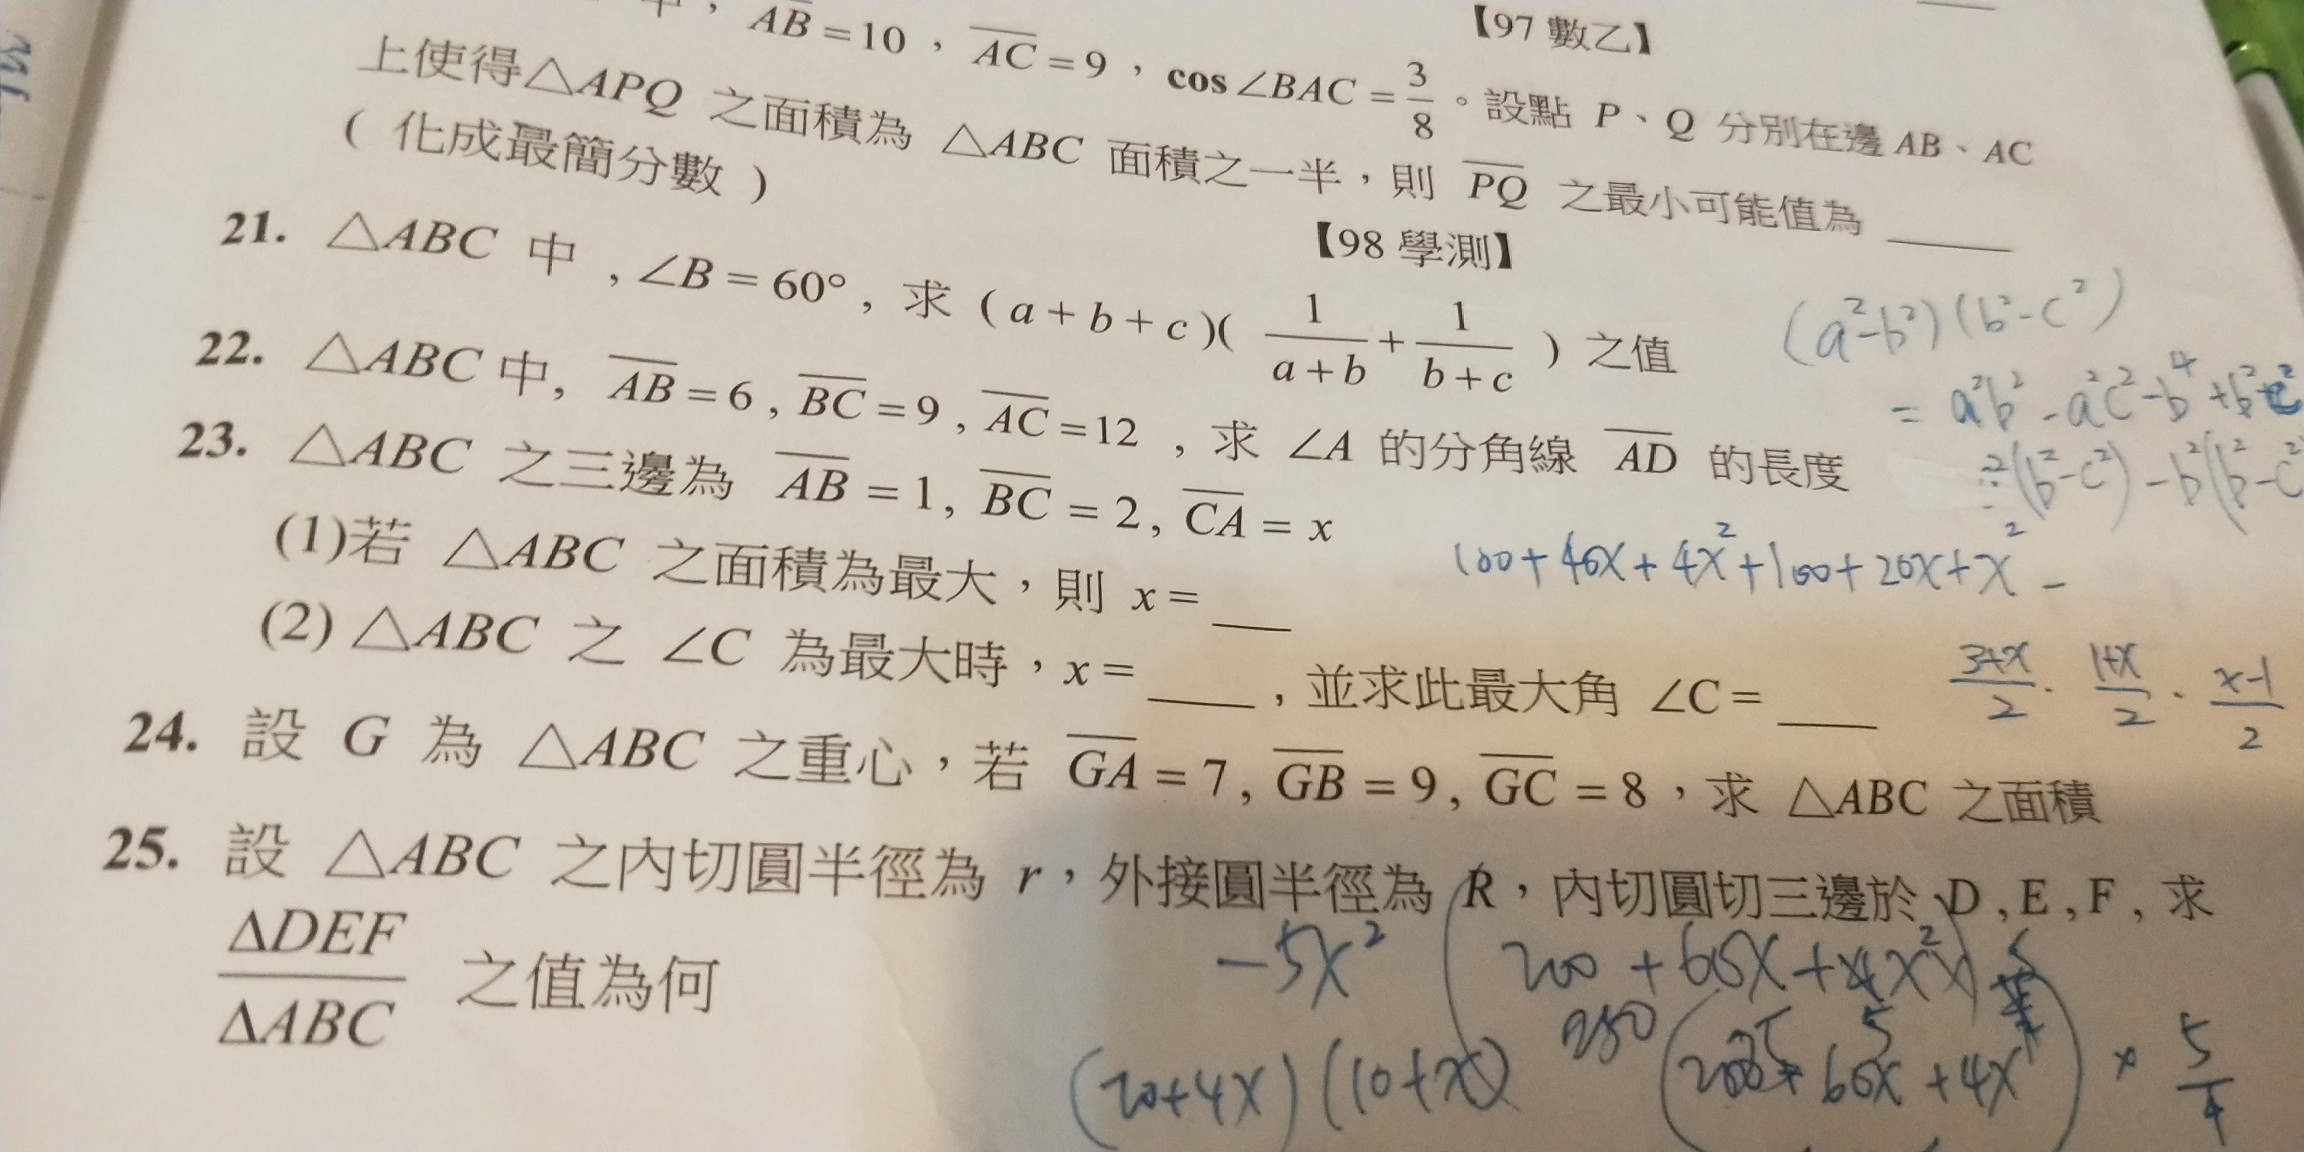 【97 數乙】
中，AB = 10，AC = 9，cos∠BAC = 3/8。設點 P、Q 分別在邊 AB、AC
上使得△APQ 之面積為 △ABC 面積之一半，則 PQ 之最小可能值為 _____
( 化成最簡分數 )
【98 學測】
21. △ABC 中 , ∠B = 60°, 求 ( a + b + c )( 1/(a+b) + 1/(b+c) ) 之值
22. △ABC 中, AB = 6 , BC = 9 , AC = 12 , 求 ∠A 的分角線 AD 的長度
23. △ABC 之三邊為 AB = 1, BC = 2, CA = x
(1)若 △ABC 之面積為最大，則 x = ___
(2) △ABC 之 ∠C 為最大時，x = ____ , 並求此最大角 ∠C = ____
24. 設 G 為 △ABC 之重心，若 GA = 7, GB = 9, GC = 8，求 △ABC 之面積
25. 設 △ABC 之內切圓半徑為 r，外接圓半徑為 R，內切圓切三邊於 D , E , F , 求
ΔDEF/ΔABC 之值為何
(a²-b²)(b²-c²)
= a²b²-a²c²-b⁴+b²c²
(b²-c²)-b²(b²-c²
100+40x+4x²+100+20x+x²-
3+x/2 · 1+x/2 · x-1/2
-5x² (200+60x+4x²)
(20+4x)(10+x) 250
60x+4x × 5/4